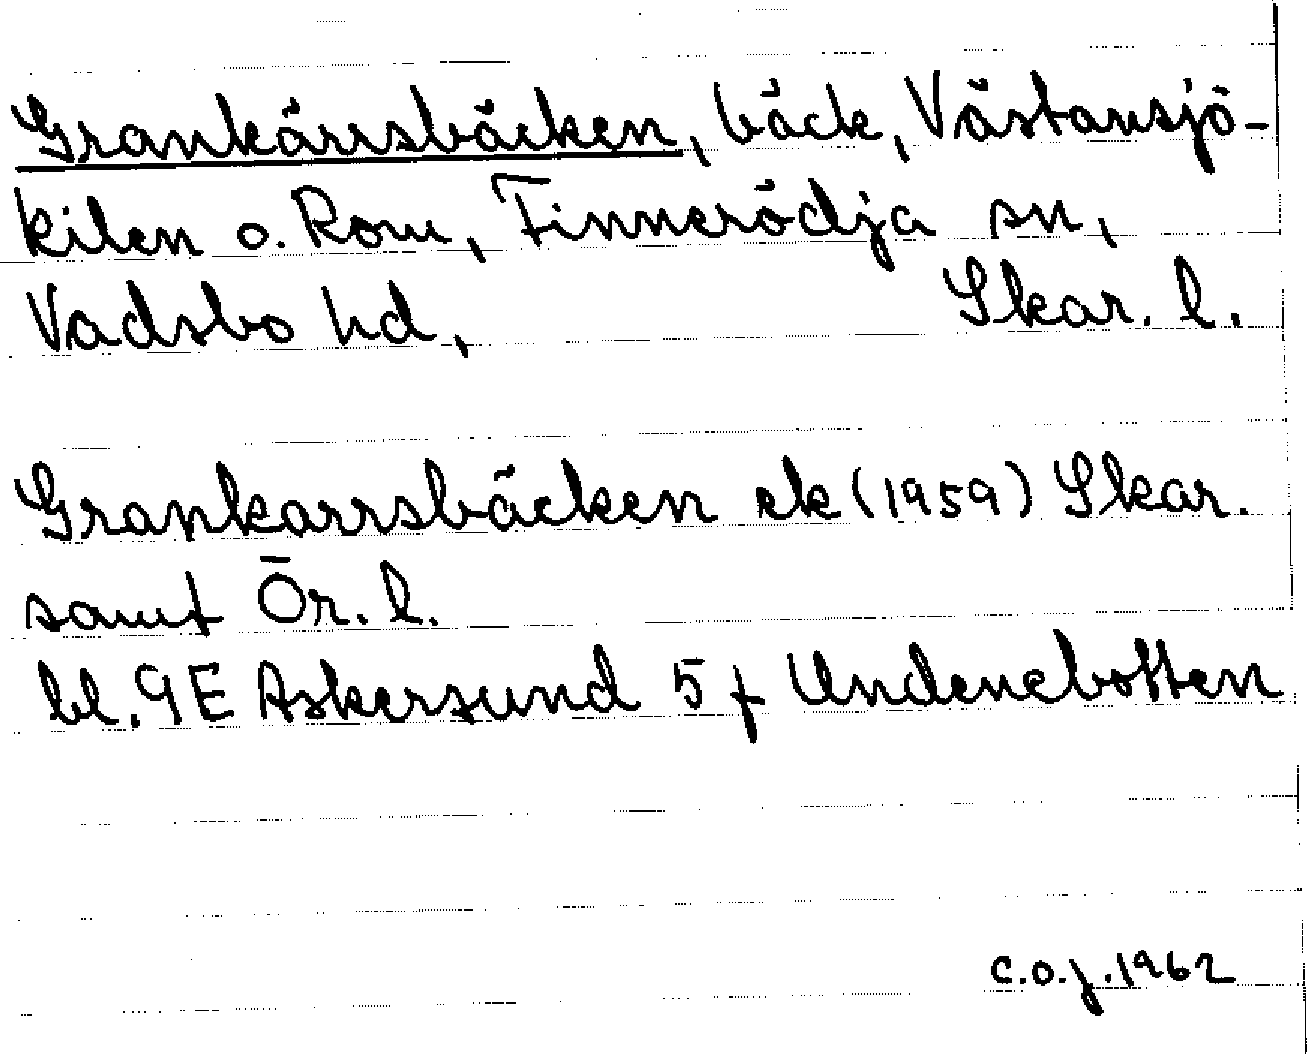 Grankärrsbäcken, bäck, Västansjö-
kilen o. Rom, Finnerödja sn,
Vadsbo hd, Skar. l.
Grankarrsbäcken ek (1959) Skar.
samt Ör. l.
bl. 9E Askersund 5 f Undenebotten
C.O.J. 1962